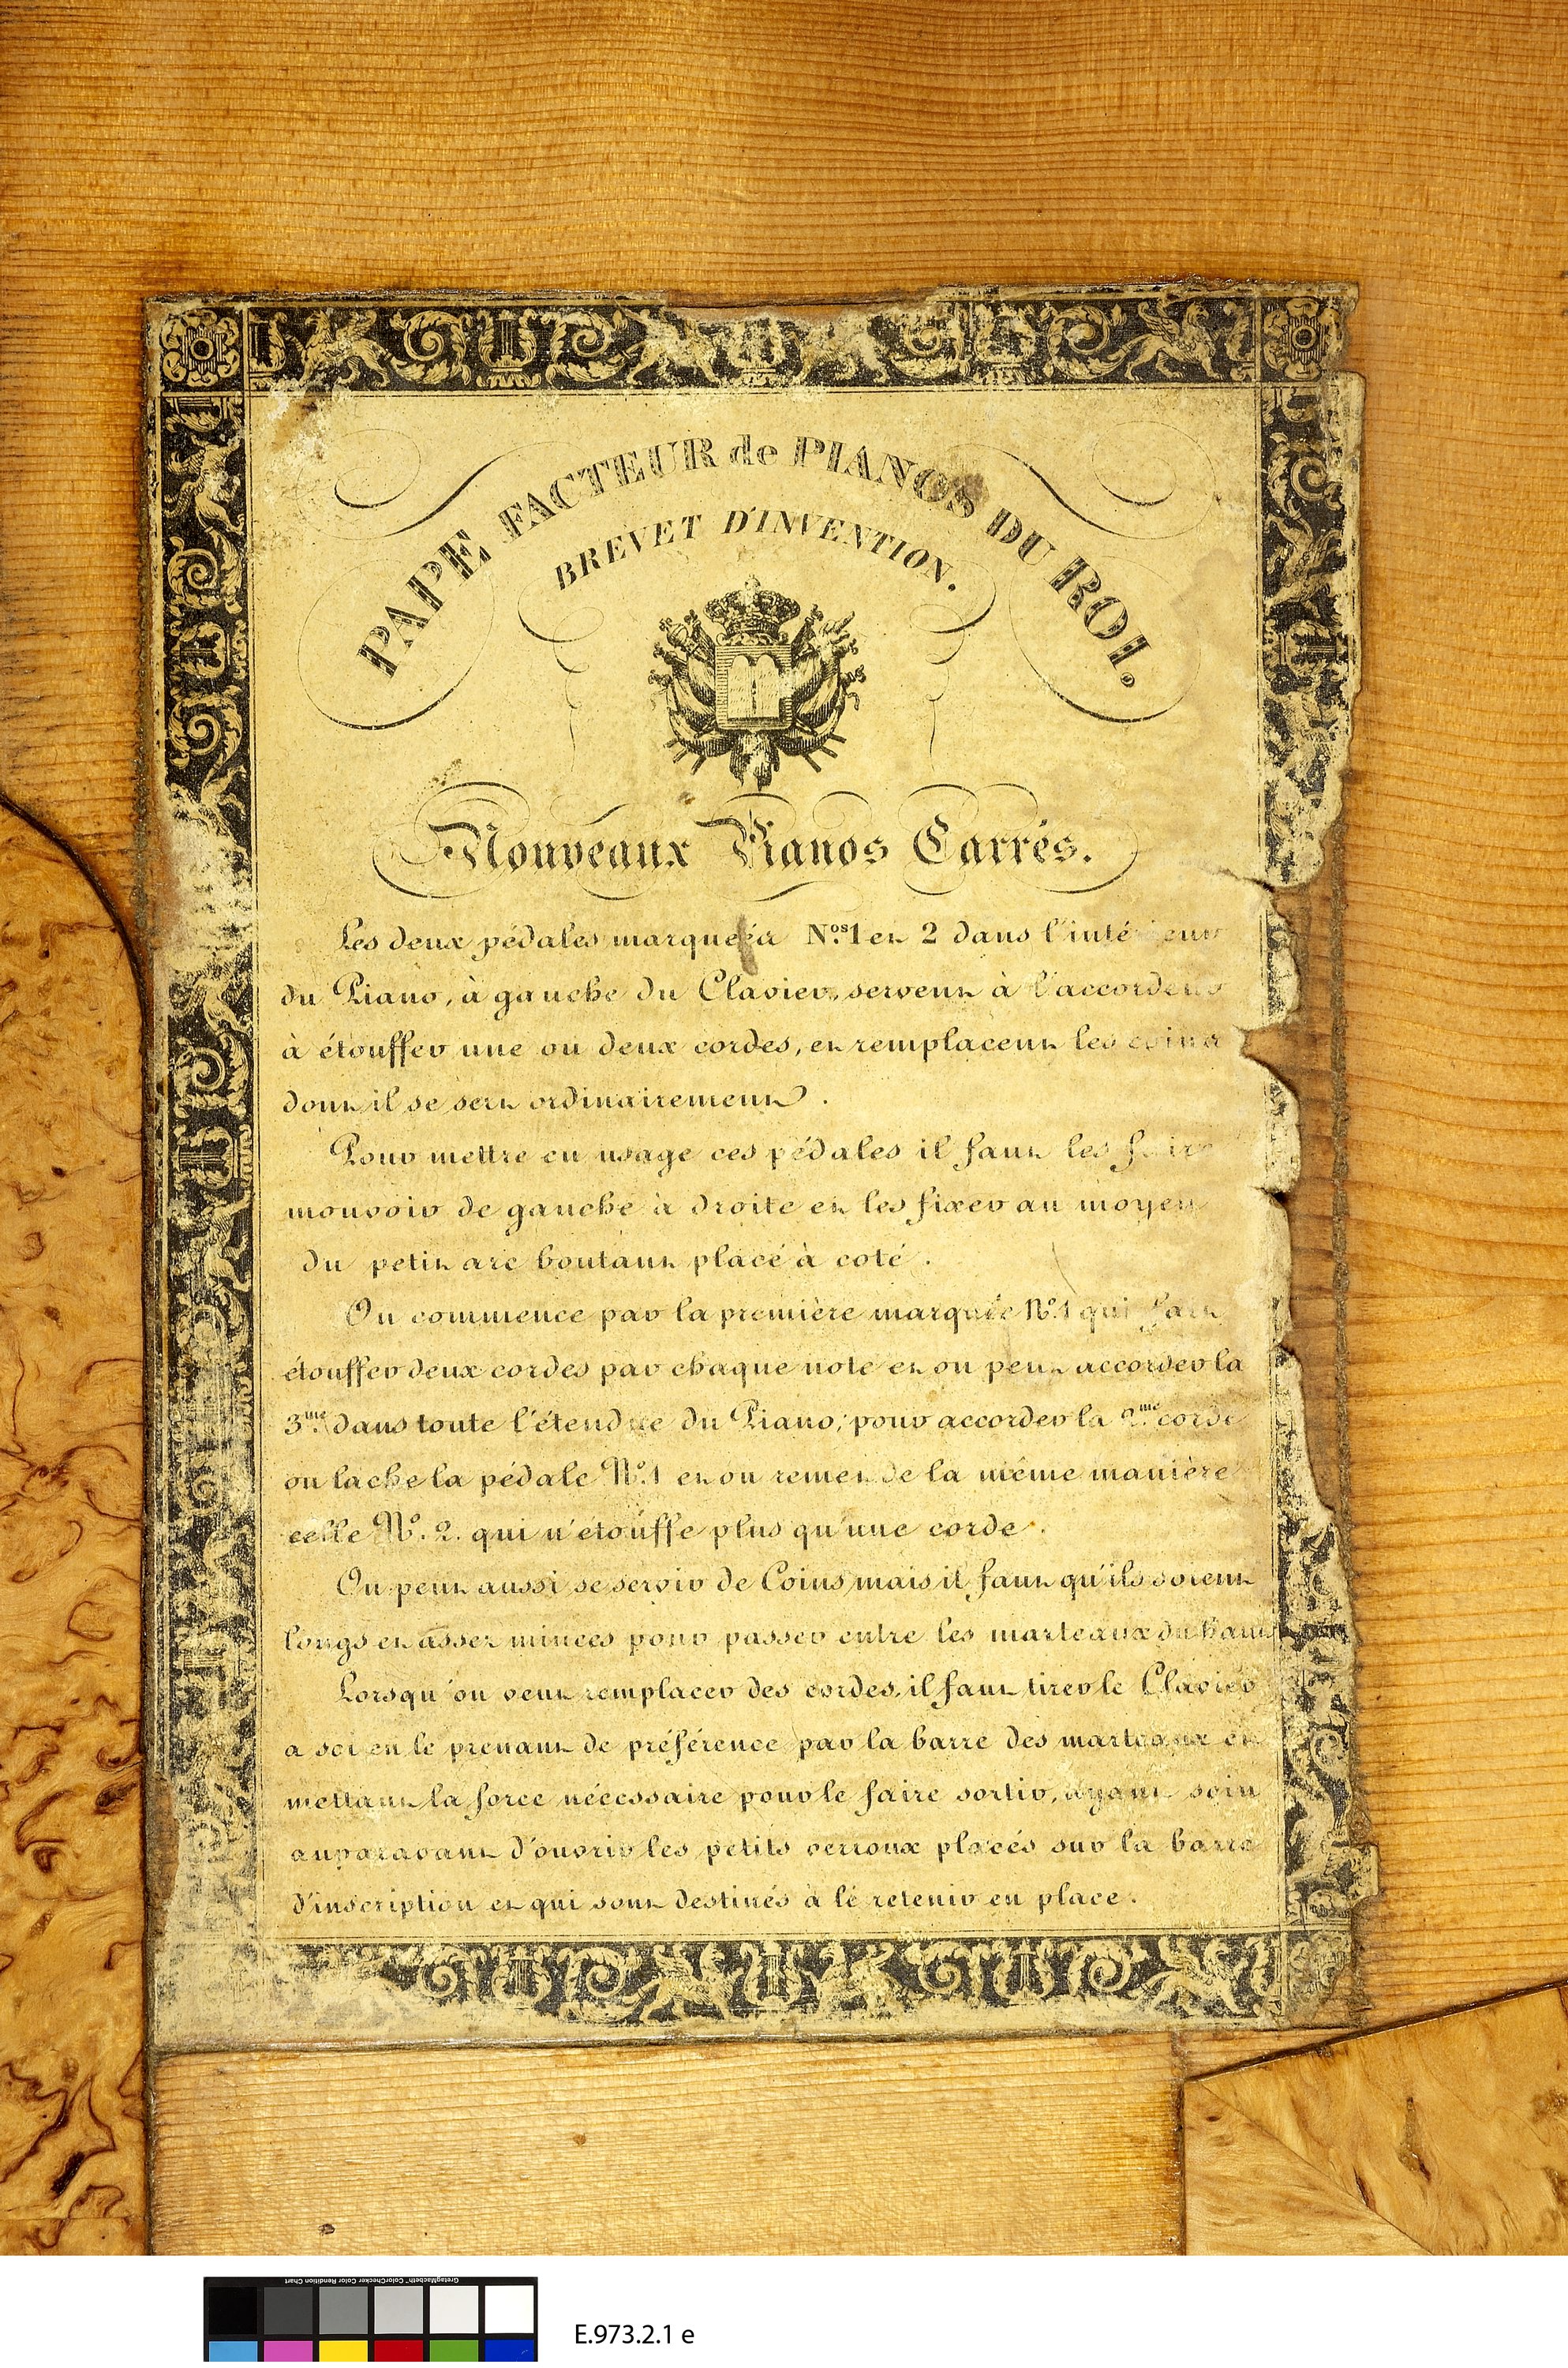 PAPE FACTEUR de PIANOS DU ROI.
BREVET D'INVENTION.
Nouveaux Pianos Carrés.
Les deux pédales marquées Nos. 1 et 2 dans l'intérieur
du Piano, à gauche du Clavier, servent à l'accordeur
à étouffer une ou deux cordes, et remplacent les coins
dont il se sert ordinairement.
Pour mettre en usage ces pédales il faut les faire
mouvoir de gauche à droite et les fixer au moyen
du petit arc boutant placé à coté.
On commence par la première marquée No. 1 qui fait
étouffer deux cordes par chaque note et on peut accorder la
3me. dans toute l'étendue du Piano; pour accorder la 2me. corde
on lache la pédale No. 1 et on remet de la même manière
celle No. 2. qui n'etouffe plus qu'une corde.
On peut aussi se servir de Coins mais il faut qu'ils soient
longs et assez minces pour passer entre les marteaux du haut
Lorsqu'on veut remplacer des cordes, il faut tirer le Clavier
a soi en le prenant de préférence par la barre des marteaux et
mettant la force nécessaire pour le faire sortir, ayant soin
auparavant d'ouvrir les petits verroux placés sur la barre
d'inscription et qui sont destinés à le retenir en place.
GretagMacbeth™ ColorChecker Color Rendition Chart
E.973.2.1 e